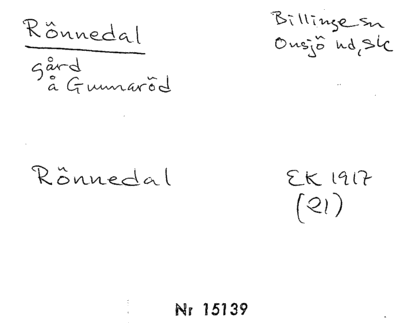 Rönnedal
Billinge sn
Onsjö hd, Sk
gård
å Gunnaröd
Rönnedal
EK 1917
(21)
Nr 15139